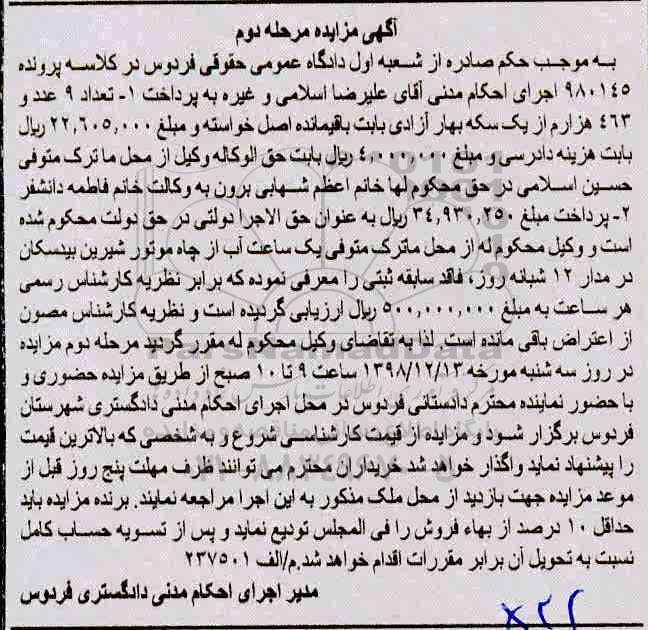 آگهی مزایده مرحله دوم
به موجب حکم صادره از شعبه اول دادگاه عمومی حقوقی فردوس در کلاسه پرونده
۹۸۰۱٤۵ اجرای احکام مدنی آقای علیرضا اسلامی و غیره به پرداخت ۱- تعداد ۹ عدد و
٤۶۳ هزارم از یک سکه بهار آزادی بابت باقیمانده اصل خواسته و مبلغ ۲۲,۶۰۵,۰۰۰ ریال
بابت هزینه دادرسی و مبلغ ٤,۰۰۰,۰۰۰ ریال بابت حق الوکاله وکیل از محل ما ترک متوفی
حسین اسلامی در حق محکوم لها خانم اعظم شهابی برون به وکالت خانم فاطمه دانشفر
۲- پرداخت مبلغ ۳٤,۹۳۰,۲۵۰ ریال به عنوان حق الاجرا دولتی در حق دولت محکوم شده
است و وکیل محکوم له از محل ماترک متوفی یک ساعت آب از چاه موتور شیرین بیدسکان
در مدار ۱۲ شبانه روز، فاقد سابقه ثبتی را معرفی نموده که برابر نظریه کارشناس رسمی
هر ساعت به مبلغ ۵۰۰,۰۰۰,۰۰۰ ریال ارزیابی گردیده است و نظریه کارشناس مصون
از اعتراض باقی مانده است. لذا به تقاضای وکیل محکوم له مقرر گردید مرحله دوم مزایده
در روز سه شنبه مورخه ۱۳۹۸/۱۲/۱۳ ساعت ۹ تا ۱۰ صبح از طریق مزایده حضوری و
با حضور نماینده محترم دادستانی فردوس در محل اجرای احکام مدنی دادگستری شهرستان
فردوس برگزار شود و مزایده از قیمت کارشناسی شروع و به شخصی که بالاترین قیمت
را پیشنهاد نماید واگذار خواهد شد خریداران محترم می توانند ظرف مهلت پنج روز قبل از
موعد مزایده جهت بازدید از محل ملک مذکور به این اجرا مراجعه نمایند. برنده مزایده باید
حداقل ۱۰ درصد از بهاء فروش را فی المجلس تودیع نماید و پس از تسویه حساب کامل
نسبت به تحویل آن برابر مقررات اقدام خواهد شد.م/الف ۲۳۷۵۰۱
مدیر اجرای احکام مدنی دادگستری فردوس